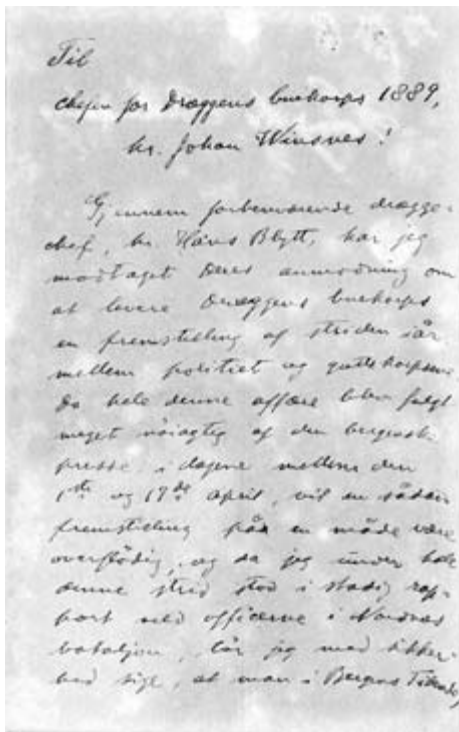 Til
chefen for Dræggens buekorps 1889,
hr. Johan Winsnes!
Gjennem forhenværende drægge-
chef, hr. Hans Blytt, har jeg
modtaget Deres anmodning om
at levere Dræggens buekorps
en fremstilling af striden iår
mellem politiet og guttekorpsene.
Da hele denne affære blev fulgt
meget nöiagtig af den bergenske
presse i dagene mellem den
1ste og 17de April, vil en sådan
fremstilling på en måde være
overflödig, og da jeg under hele
denne strid stod i stadig rap-
port med officerne i Nordnæs
bataljon, tör jeg med sikker-
hed sige, at man i Bergens Tidende